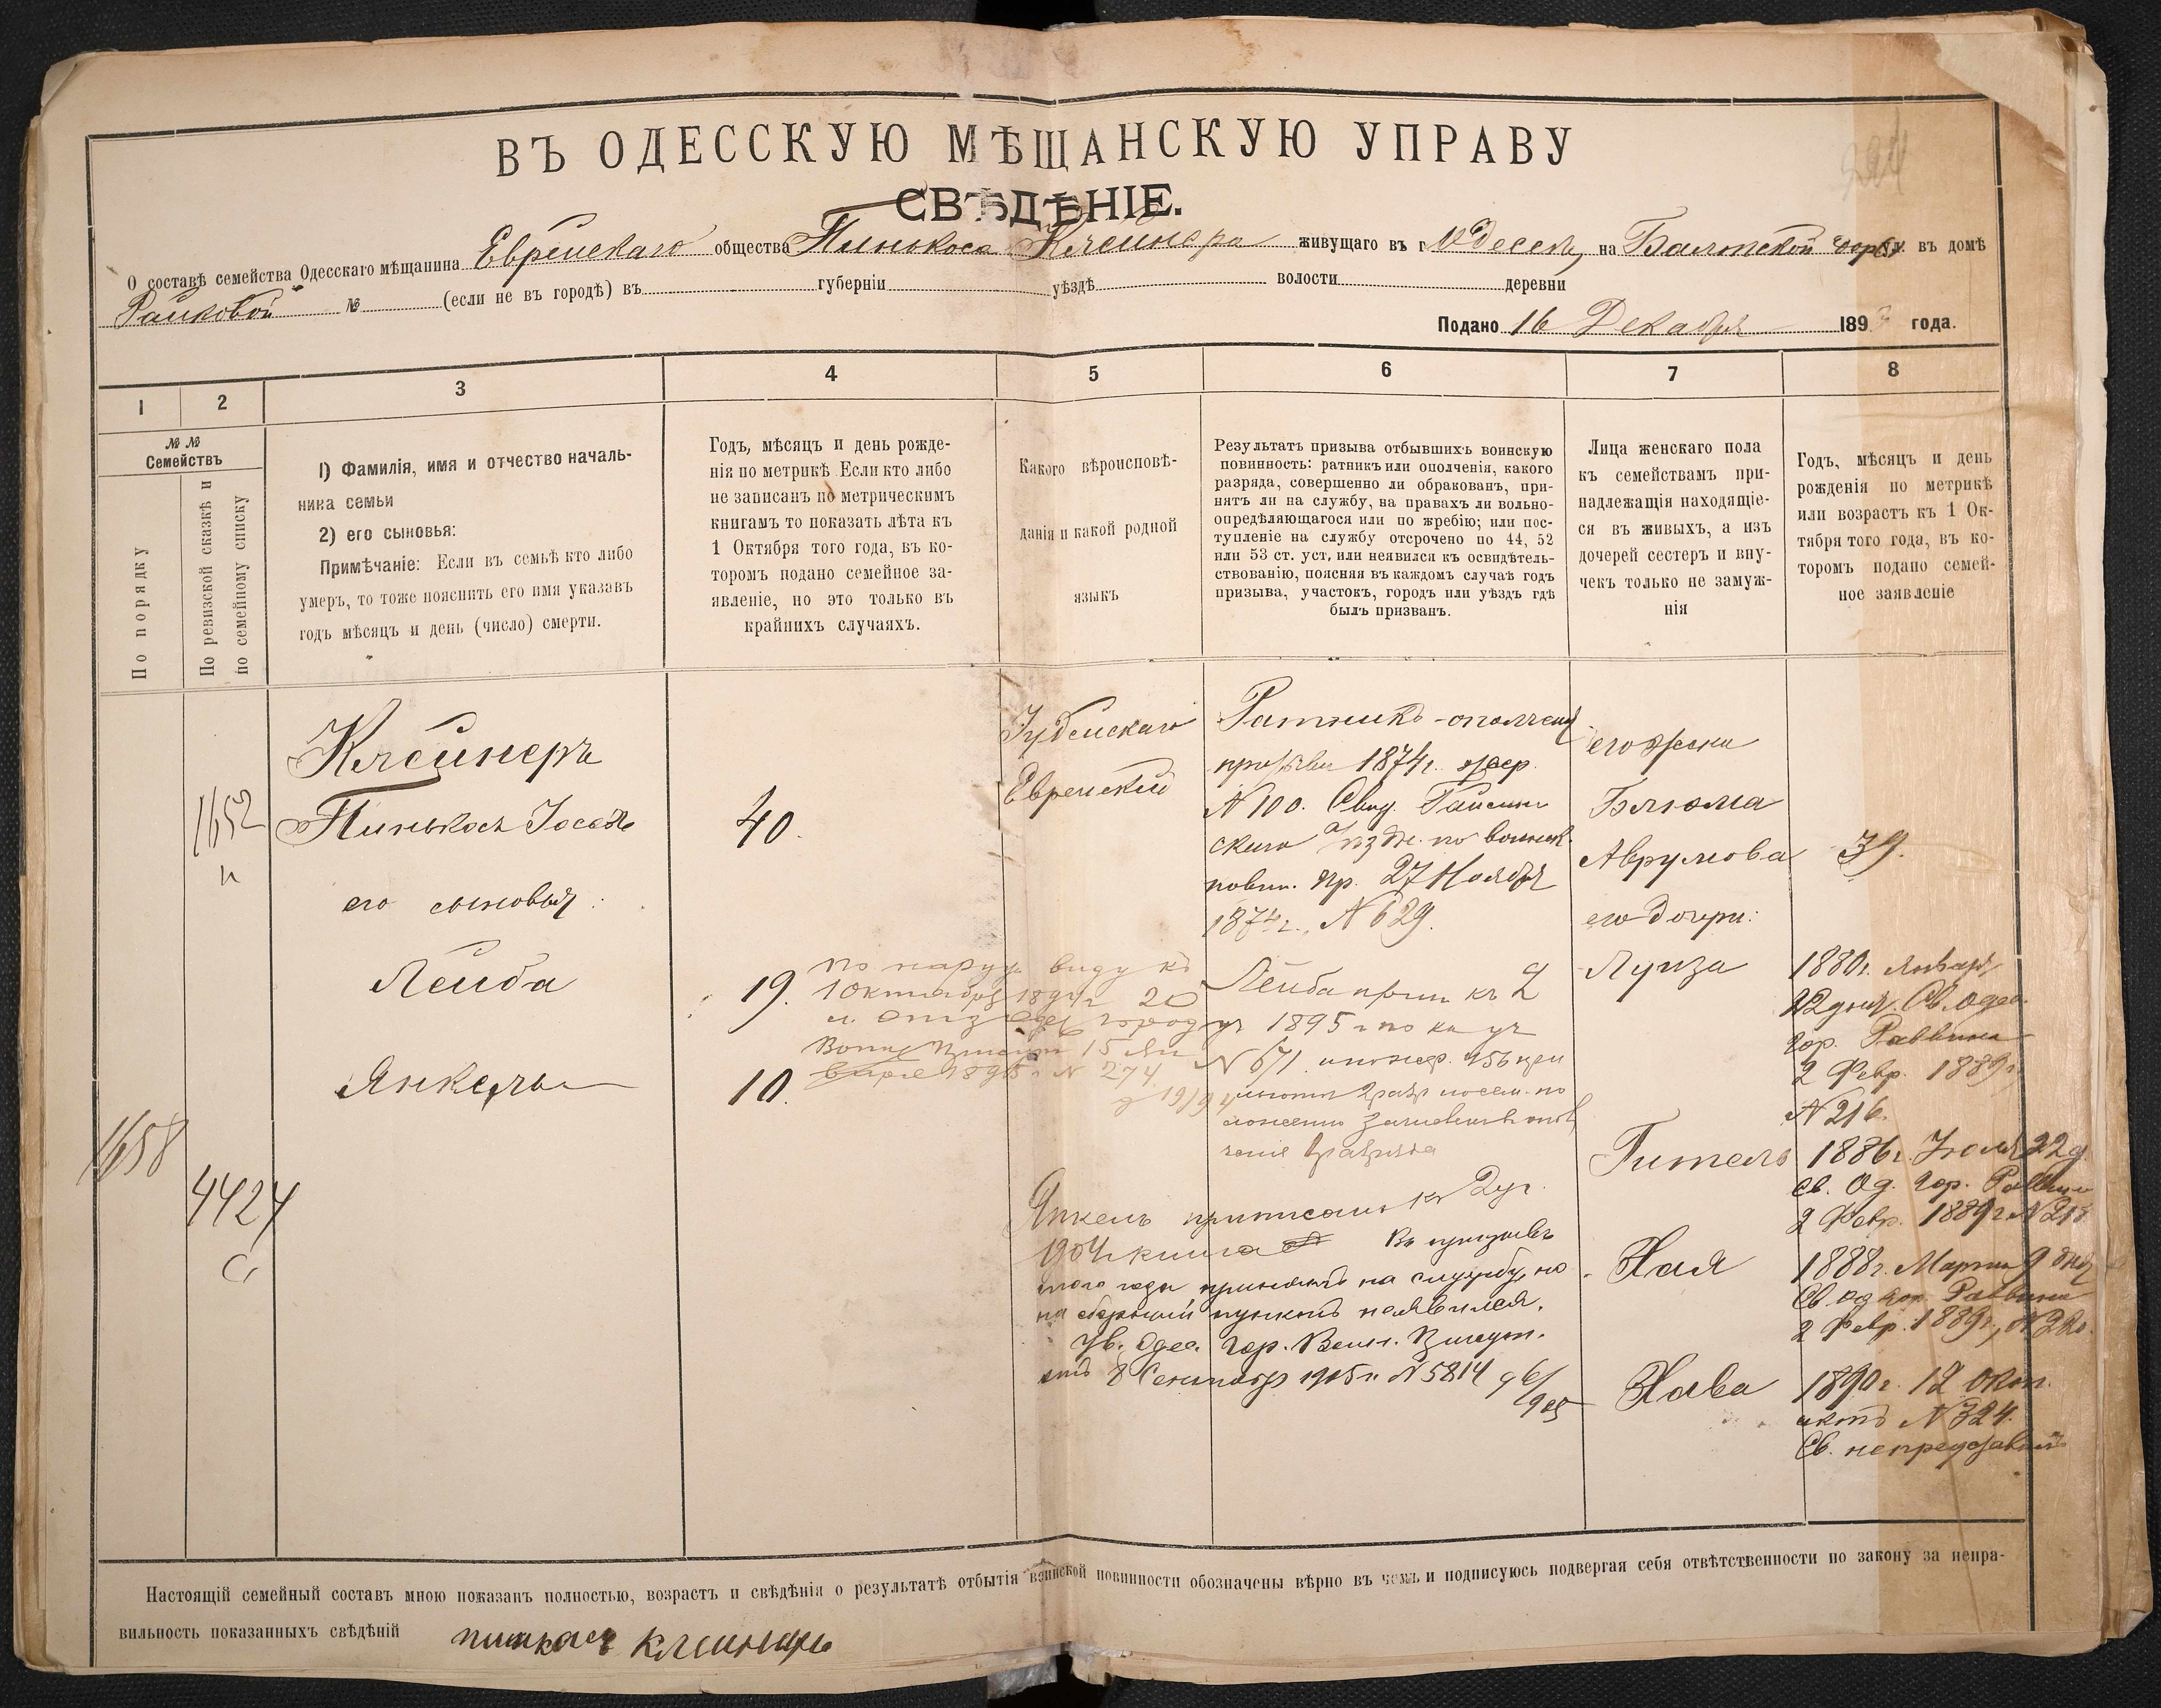 ВЪ ОДЕССКУЮ МѢЩАНСКУЮ УПРАВУ
СВѢДѢНІЕ.
О составѣ семейства Одесскаго мѣщанина Еврейскаго общества Пинькоса Клейнера живущаго въ г. Одессѣ, на Балтской дор. ул. въ домѣ
Райковой № (если не въ городѣ) въ губерніи уѣздѣ волости деревни
Подано 16 Декабря 189 года.
1 2 3 4 5 6 7 8
№ №
Семействъ
По порядку
По ревизской сказкѣ и
по семейному списку
1) Фамилія, имя и отчество началь-
ника семьи
2) его сыновья:
Примѣчаніе: Если въ семьѣ кто либо
умеръ, то тоже пояснить его имя указавъ
годъ мѣсяцъ и день (число) смерти.
Годъ, мѣсяцъ и день рожде-
нія по метрикѣ Если кто либо
не записанъ по метрическимъ
книгамъ то показать лѣта къ
1 Октября того года, въ ко-
торомъ подано семейное за-
явленіе, но это только въ
крайнихъ случаяхъ.
Какого вѣроисповѣ-
данія и какой родной
языкъ
Результатъ призыва отбывшихъ воинскую
повинность: ратникъ или ополченія, какого
разряда, совершенно ли обракованъ, при-
нятъ ли на службу, на правахъ ли вольно-
опредѣляющагося или по жребію; или пос-
тупленіе на службу отсрочено по 44, 52
или 53 ст. уст, или неявился къ освидѣтель-
ствованію, поясняя въ каждомъ случаѣ годъ
призыва, участокъ, городъ или уѣздъ гдѣ
былъ призванъ.
Лица женскаго пола
къ семействамъ при-
надлежащія находящіе-
ся въ живыхъ, а изъ
дочерей сестеръ и вну-
чекъ только не замуж-
нія
Годъ, мѣсяцъ и день
рожденія по метрикѣ
или возрастъ къ 1 Ок-
тября того года, въ ко-
торомъ подано семей-
ное заявленіе
1658
1652
4424
Клейнеръ
Пинькосъ Іосевъ
его сыновья:
Лейба
Янкель
40.
19.
10.
по наруж виду къ
1 Октября 1894 г 20
1895 г N 274
Іудейскаго
Еврейскій
Ратникъ-ополчен
призыва 1874 г. жер.
N 100. Свид.
скаго Уѣздн. по воинск.
повин. пр. 27 Ноября
1874 г., N 629.
Лейба прип къ 2
уч 1895 г по
N 671 жер. 456
Янкель приписанъ къ 2 уч.
1904 книга Въ призывъ
того года принятъ на службу, но
на сборный пунктъ неявился.
Ув. Одес. Гор. Воин. Присут.
отъ 8 Сентября 1905 г. N 5814
его жена
Блюма
Аврумова
его дочери:
Луиза
Гитель
Хая
Хава
39.
1880 г. Января
22 дня. Св. Одес.
Гор. Раввина
2 Февр. 1889 г.
N 216.
1886 г. Іюля 22 д
св. Од. Гор. Раввин
2 Февр. 1889 г. N 218
1888 г. Марта 9 дня
Св Од гор. Раввина
2 Февр. 1889 г., N 220.
1890 г. 12 Окт.
актъ N 324.
Св. непредставил
Настоящій семейный составъ мною показанъ полностью, возрастъ и свѣдѣнія о результатѣ отбытія воинской повинности обозначены вѣрно въ чемъ и подписуюсь подвергая себя отвѣтственности по закону за непра-
вильность показанныхъ свѣдѣній пинкасъ клейнеръ